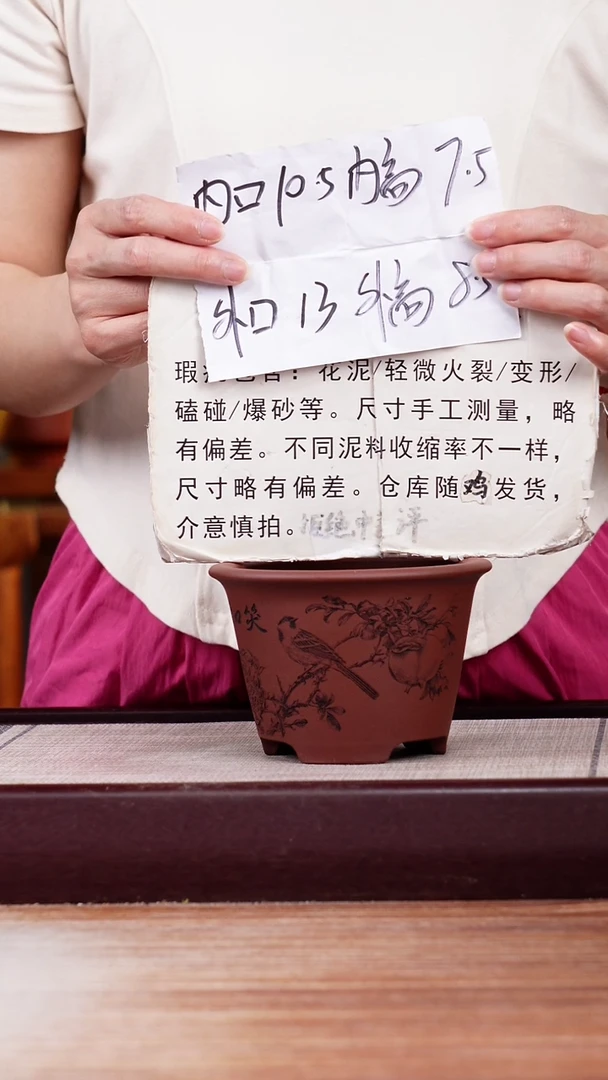 内口10.5内高7.5
外口13外高8.5
瑕疵包含：花泥/轻微火裂/变形/
磕碰/爆砂等。尺寸手工测量，略
有偏差。不同泥料收缩率不一样，
尺寸略有偏差。仓库随鸡发货，
介意慎拍。拒绝中